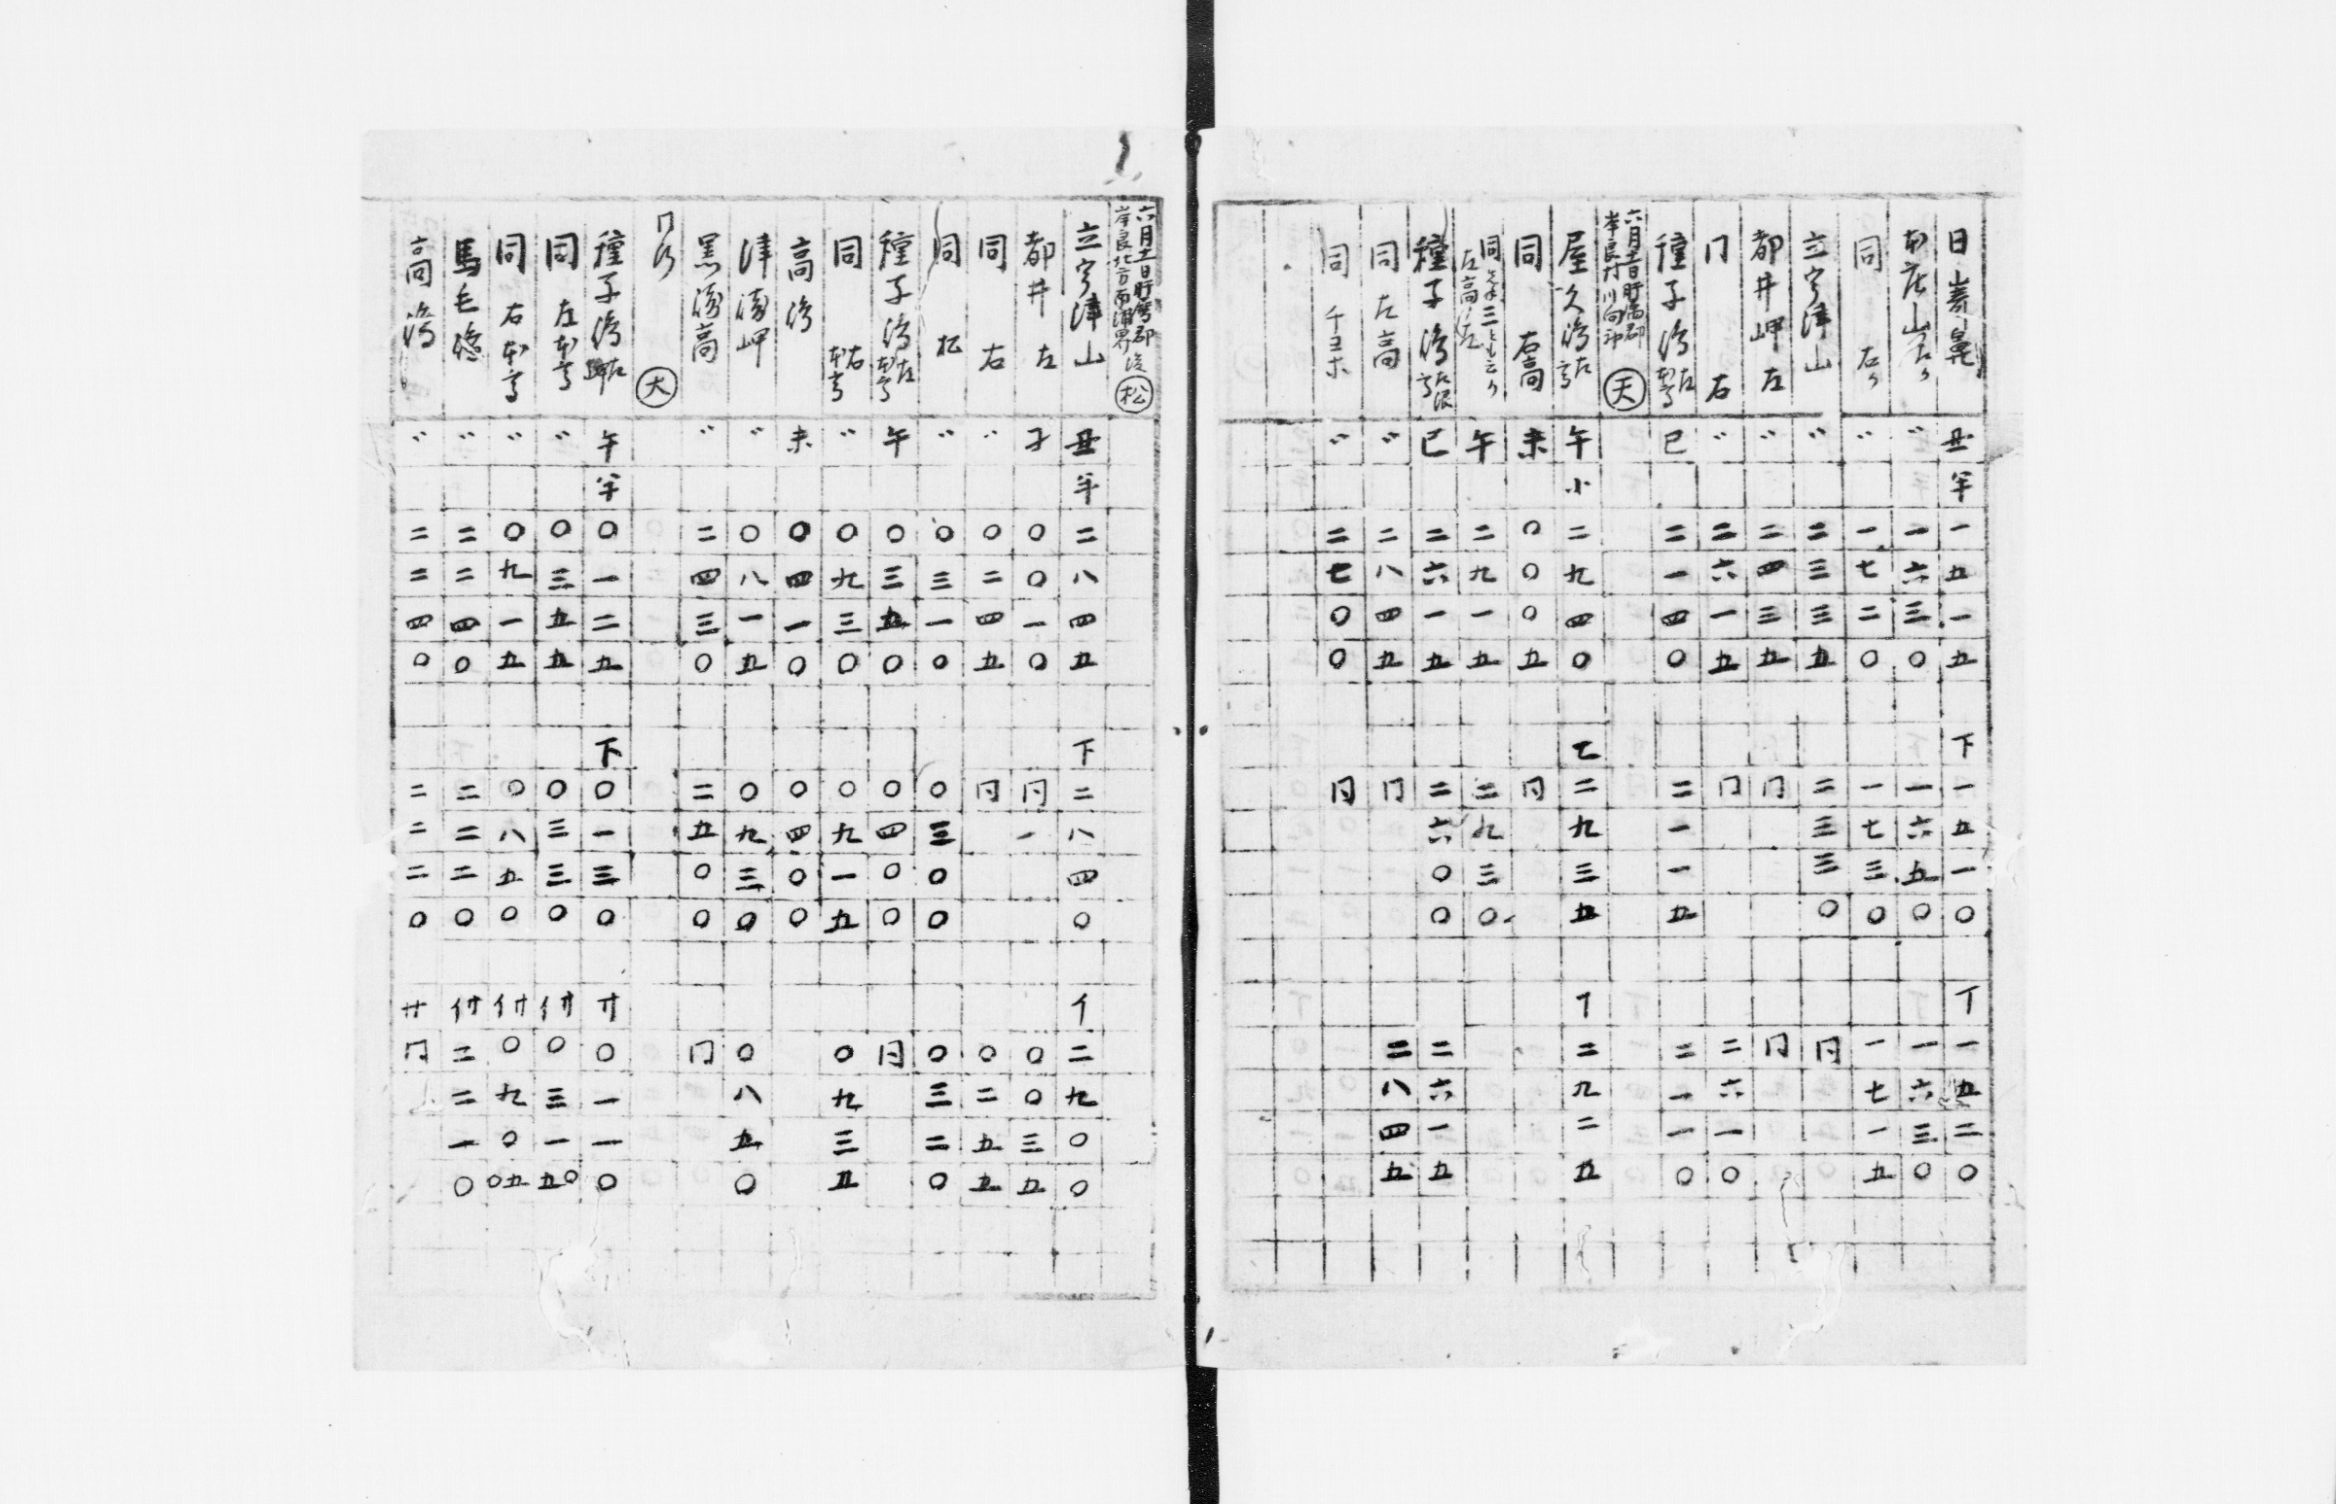 日 嵜鼻 丑 半 一五一五 下 一五一〇 丁 一五二〇
〃 一六三〇 一六五〇 一六三〇
同 右 〃 一七二〇 一七三〇 一七一五
立宇津山 〃 二三三五 二三三〇 同
都井岬 左 〃 二四三五 同 同
同 右 〃 二六一五 同 二六一〇
種子島 左 巳 二一四〇 二一一五 二一一〇
六月 日肝属郡
岸良村
天
屋久島 左 午 小 二九四〇 七 二九三五 丁 二九二五
同 右高 未 〇〇〇五 同
同 左高 午 二九一五 二九三〇
種子島 左 巳 二六一五 二六〇〇 二六一五
同 左高 〃 二八四五 同 二八四五
同 〃 二七〇〇 同
六月 日肝属郡
岸良北方南浦界
松
立宇津山 丑 半 二八四五 下 二八四〇 イ 二九〇〇
都井 左 子 〇〇一〇 同一 〇〇三五
同 右 〃 〇二四五 同 〇二五五
同 松 〃 〇三一〇 〇三〇〇 〇三二〇
種子島 左 午 〇三五〇 〇四〇〇 同
同 右 〃 〇九三〇 〇九一五 〇九三五
高島 未 〇四一〇 〇四〇〇
津濱岬 〃 〇八一五 〇九三〇 〇八五〇
黒濱高 〃 二四三〇 二五〇〇 同
同所
大
種子島 左 午 半 〇一二五 下 〇一三〇 サ 〇一一〇
同 左 〃 〇三五五 〇三三〇 イサ 〇三一五〇
同 右 〃 〇九一五 〇八五〇 イサ 〇九〇〇五
馬毛島 〃 二二四〇 二二二〇 イサ 二二一〇
高島 〃 二二四〇 二二二〇 サ 同